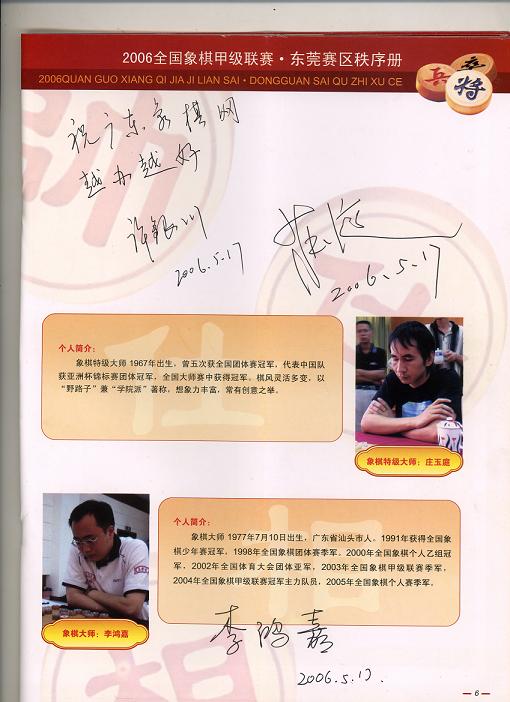 2006全国象棋甲级联赛·东莞赛区秩序册
2006QUAN GUO XIANG QI JIA JI LIAN SAI·DONGGUAN SAI QU ZHI XU CE
兵
将
祝广东象棋网
越办越好
许银川
2006.5.17
2006.5.17
个人简介：
象棋特级大师 1967年出生，曾五次获全国团体赛冠军，代表中国队
获亚洲杯锦标赛团体冠军，全国大师赛中获得冠军。棋风灵活多变，以
“野路子”兼“学院派”著称，想象力丰富，常有创意之举。
象棋特级大师：庄玉庭
个人简介：
象棋大师 1977年7月10日出生，广东省汕头市人，1991年获得全国象
棋少年赛冠军，1998年全国象棋团体赛季军。2000年全国象棋个人乙组冠
军，2002年全国体育大会团体亚军，2003年全国象棋甲级联赛季军，
2004年全国象棋甲级联赛冠军主力队员，2005年全国象棋个人赛季军。
象棋大师：李鸿嘉
李鸿嘉
2006.5.17.
6